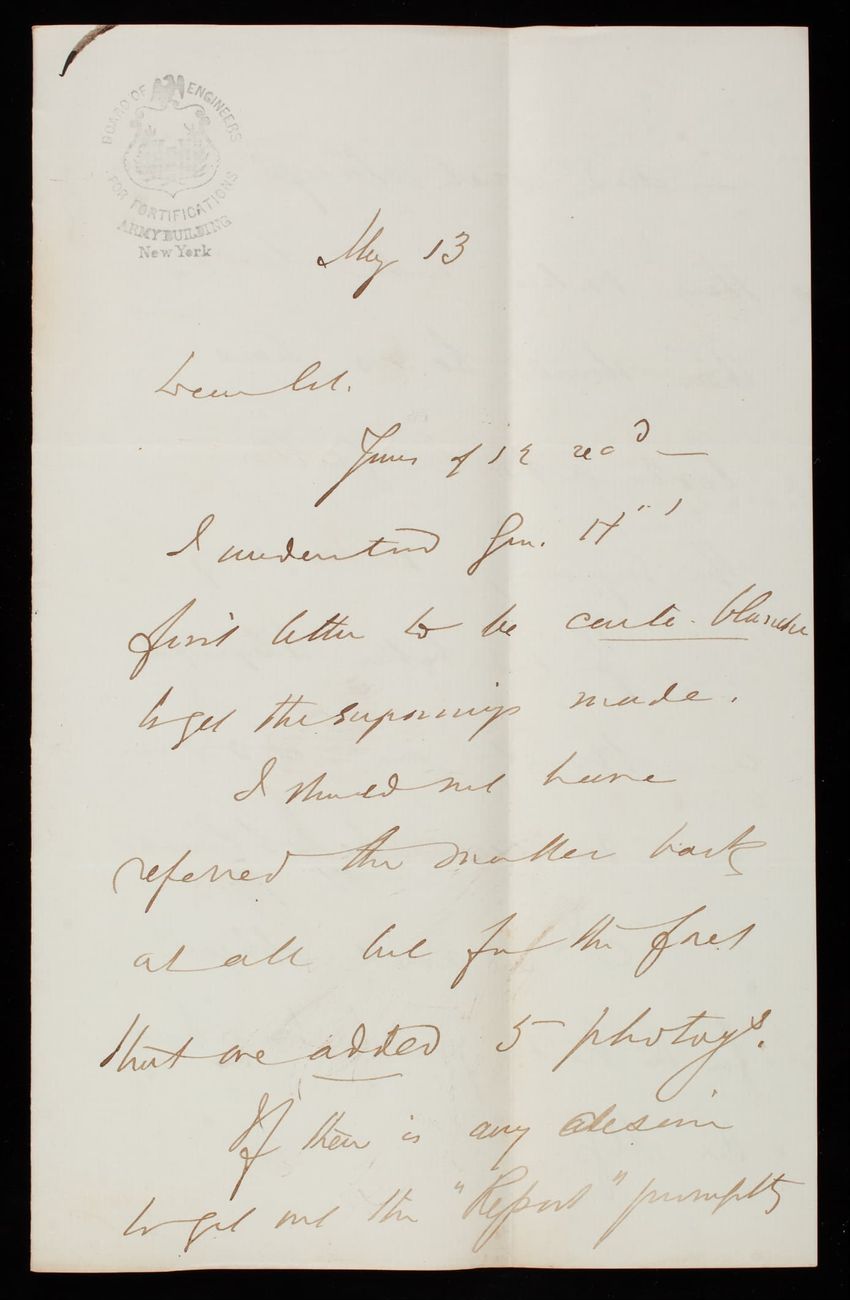 BOARD OF ENGINEERS
FOR FORTIFICATIONS
ARMY BUILDING
New York
May 13
Dear Col.
Yours of 12 recd —
I understand Gen. H"'
first letter to be carte-blanche
to get the made.
I should not have
referred the matter back
at all but for the fact
that we added 5 photogs.
If there is any desire
to get out the "Report" promptly